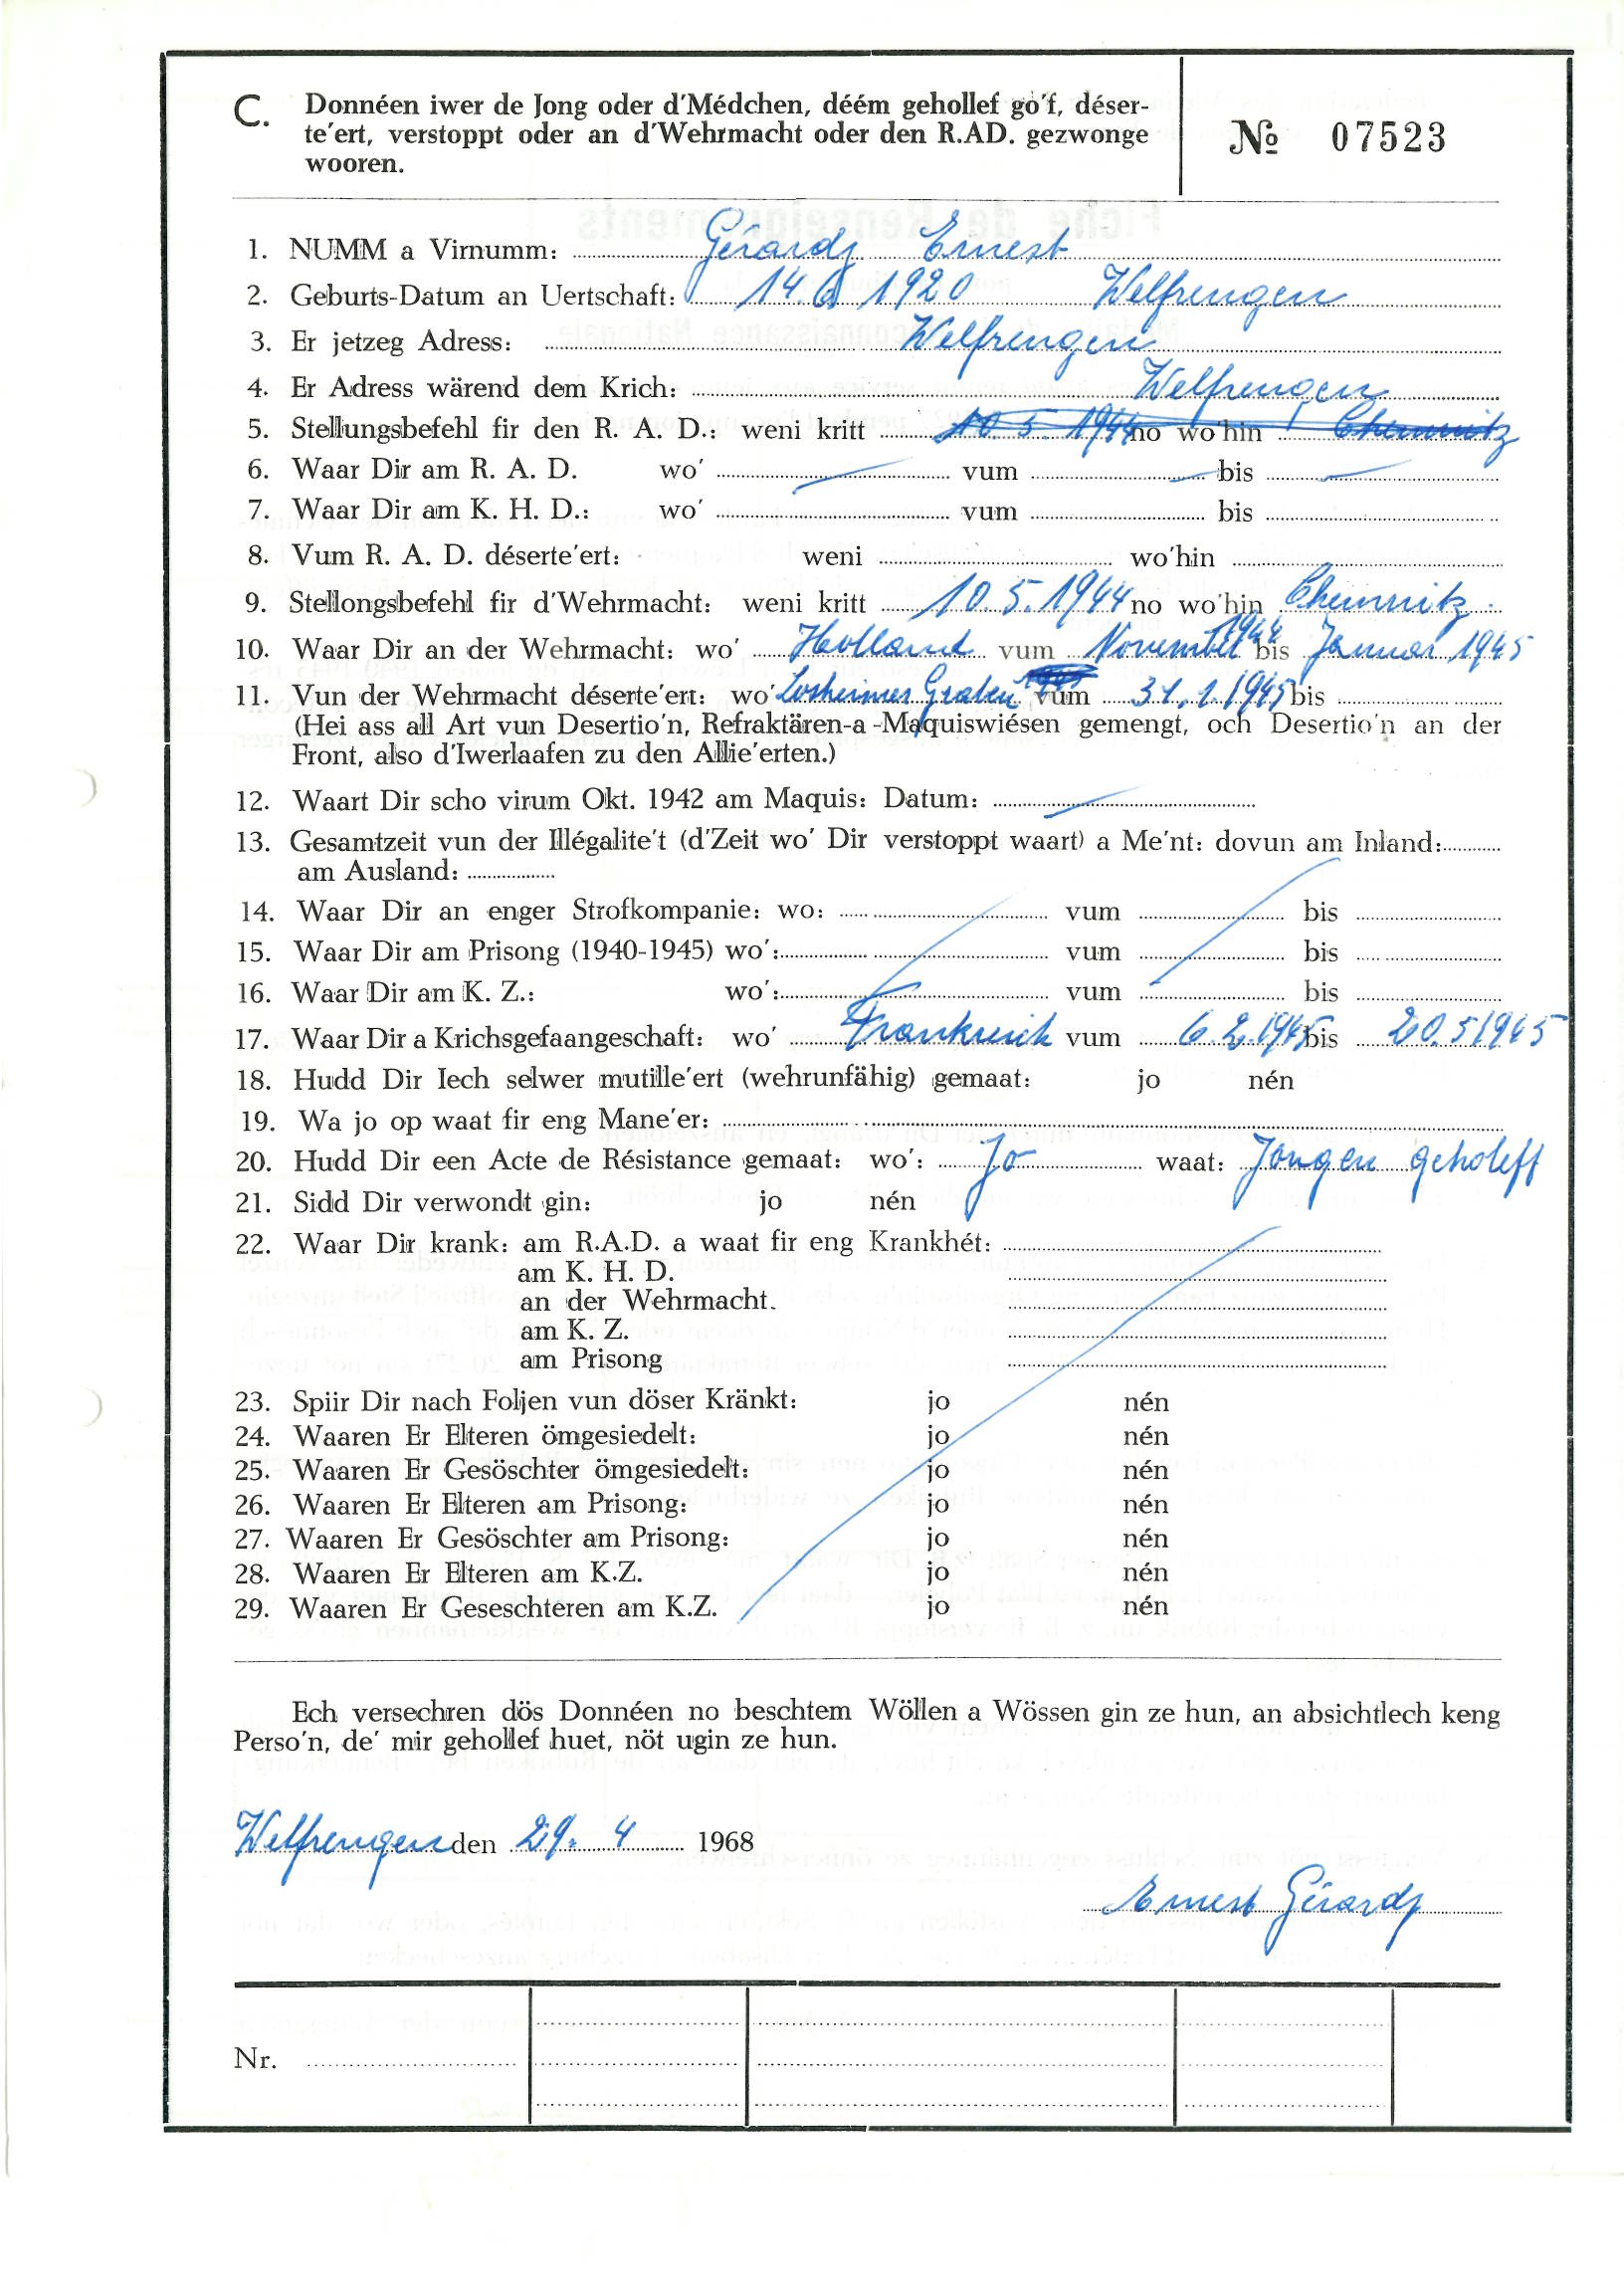 C. Donnéen iwer de Jong oder d'Médchen, déém gehollef go'f, déser-
te'ert, verstoppt oder an d'Wehrmacht oder den R.AD. gezwonge
wooren.
№ 07523
1. NUMM a Virnumm: Gérardy Ernest
2. Geburts-Datum an Uertschaft: 14. 1920 Welfrengen
3. Er jetzeg Adress: Welfrengen
4. Er Adress wärend dem Krich: Welfrengen
5. Stellungsbefehl fir den R. A. D.: weni kritt 10. 5. 1944 no wo'hin Chemnitz
6. Waar Dir am R. A. D. wo' vum bis
7. Waar Dir am K. H. D.: wo' vum bis
8. Vum R. A. D. déserte'ert: weni wo'hin
9. Stellongsbefehl fir d'Wehrmacht: weni kritt 10. 5. 1944 no wo'hin Chemnitz
10. Waar Dir an der Wehrmacht: wo' Holland vum November 1944 bis Januar 1945
11. Vun der Wehrmacht déserte'ert: wo' Losheimer Graben vum 31. 1. 1945 bis
(Hei ass all Art vun Desertio'n, Refraktären-a-Maquiswiésen gemengt, och Desertio'n an der
Front, also d'Iwerlaafen zu den Allie'erten.)
12. Waart Dir scho virum Okt. 1942 am Maquis: Datum:
13. Gesamtzeit vun der Illégalite't (d'Zeit wo' Dir verstoppt waart) a Me'nt: dovun am Inland:
am Ausland:
14. Waar Dir an enger Strofkompanie: wo: vum bis
15. Waar Dir am Prisong (1940-1945) wo': vum bis
16. Waar Dir am K. Z.: wo': vum bis
17. Waar Dir a Krichsgefaangeschaft: wo' Frankreich vum 6. 2. 1945 bis 20. 5 1945
18. Hudd Dir Iech selwer mutille'ert (wehrunfähig) gemaat: jo nén
19. Wa jo op waat fir eng Mane'er:
20. Hudd Dir een Acte de Résistance gemaat: wo': Jo waat: Jongen geholeff
21. Sidd Dir verwondt gin: jo nén
22. Waar Dir krank: am R.A.D. a waat fir eng Krankhét:
am K. H. D.
an der Wehrmacht.
am K. Z.
am Prisong
23. Spiir Dir nach Foljen vun döser Kränkt: jo nén
24. Waaren Er Elteren ömgesiedelt: jo nén
25. Waaren Er Gesöschter ömgesiedelt: jo nén
26. Waaren Er Elteren am Prisong: jo nén
27. Waaren Er Gesöschter am Prisong: jo nén
28. Waaren Er Elteren am K.Z. jo nén
29. Waaren Er Geseschteren am K.Z. jo nén
Ech versechren dös Donnéen no beschtem Wöllen a Wössen gin ze hun, an absichtlech keng
Perso'n, de' mir gehollef huet, nöt ugin ze hun.
Welfrengen den 29. 4 1968
Ernest Gérardy
Nr.